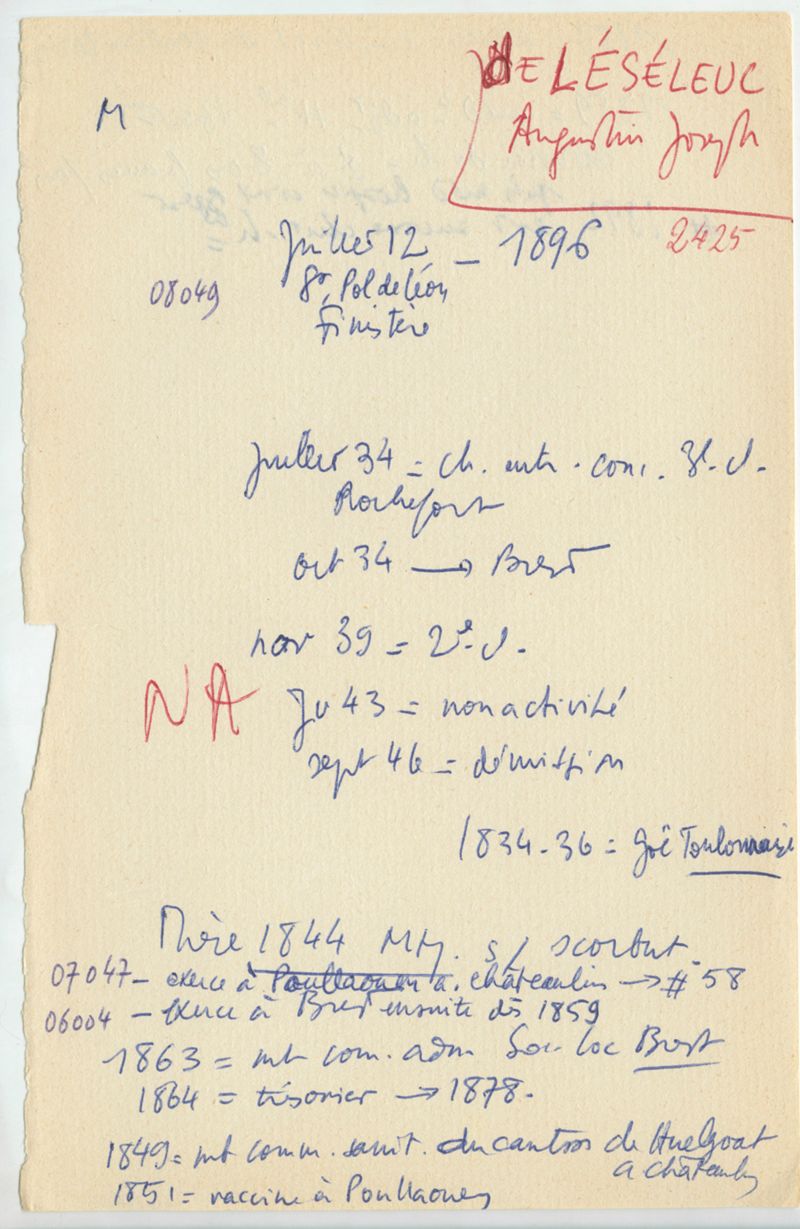 M
de LÉSÉLEUC
Augustin Joseph
2425
Juillet 12 - 1896
08049
St Pol de Léon
Finistère
Juillet 34 = ch. entr. conc. 3e cl.
Rochefort
oct 34 → Brest
nov 39 = 2e cl.
NA
Jv 43 = non activité
sept 46 = démission
1834-36 = goê Toulonnaise
Thèse 1844 MM. s/ scorbut.
07047 - exerce à Poullaouen a. châteaulin → # 58
06004 - exerce à Brest ensuite dès 1859
1863 = mt com. adm Soc loc Brest
1864 = trésorier → 1878.
1849 = mt comm. sanit. du canton de Huelgoat
a châteaulin
1851 = vaccine à Poullaouen